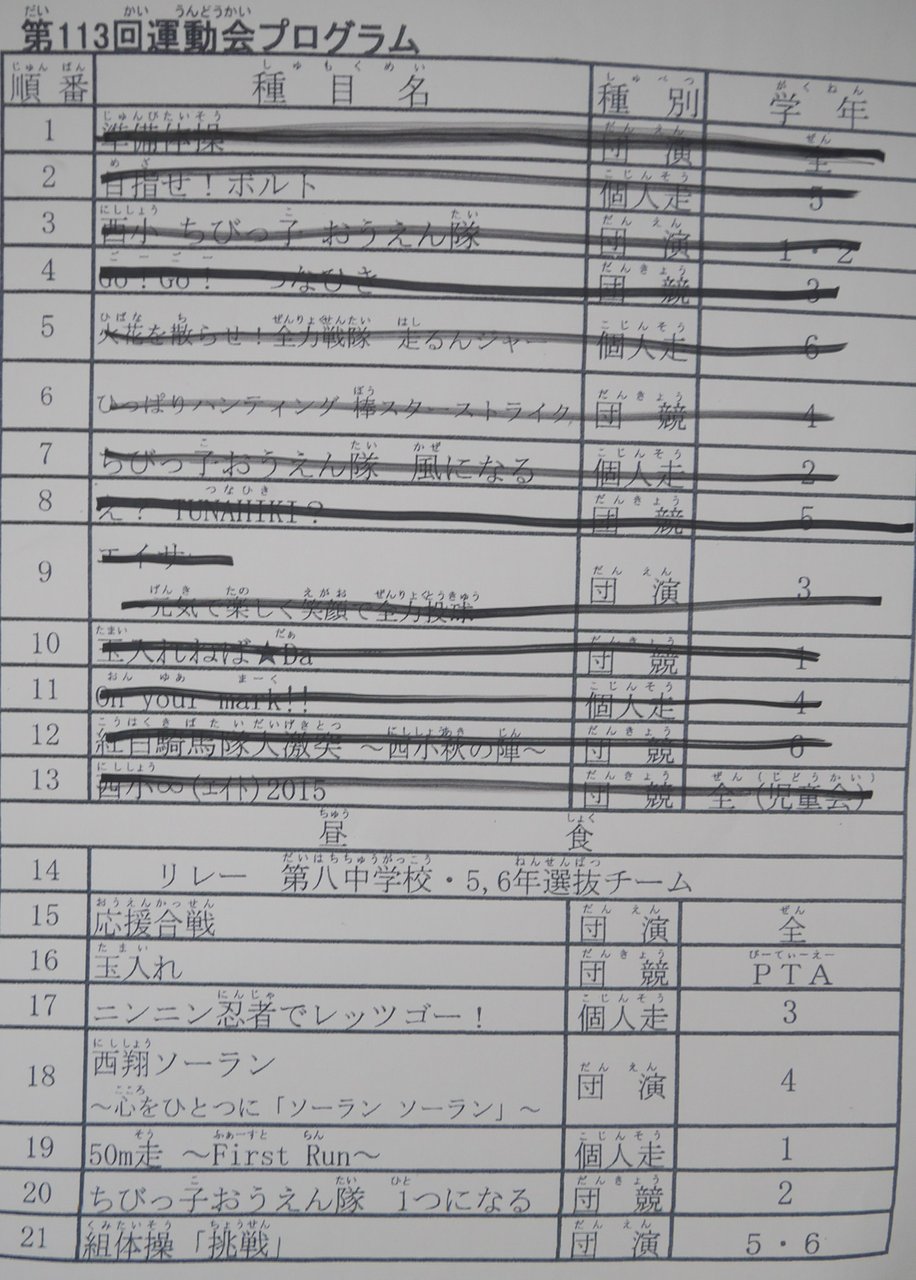 第113回運動会プログラム
順番 種目名 種別 学年
1 準備体操 団演 全
2 目指せ！ボルト 個人走 5
3 西小 ちびっ子 おうえん隊 団演 1・2
4 GO！GO！ つなひき 団競 3
5 火花を散らせ！全力戦隊 走るんジャー 個人走 6
6 ひっぱりハンティング 棒スターストライク 団競 4
7 ちびっ子おうえん隊 風になる 個人走 2
8 え？ TUNAHIKI？ 団競 5
9 エイサー
元気で楽しく笑顔で全力投球 団演 3
10 玉入れねば★Da 団競 1
11 On your mark!! 個人走 4
12 紅白騎馬隊大激突 ～西小秋の陣～ 団競 6
13 西小∞(エイト)2015 団競 全(児童会)
昼食
14 リレー 第八中学校・5,6年選抜チーム
15 応援合戦 団演 全
16 玉入れ 団競 PTA
17 ニンニン忍者でレッツゴー！ 個人走 3
18 西翔ソーラン
～心をひとつに「ソーラン ソーラン」～ 団演 4
19 50m走 ～First Run～ 個人走 1
20 ちびっ子おうえん隊 1つになる 団競 2
21 組体操「挑戦」 団演 5・6